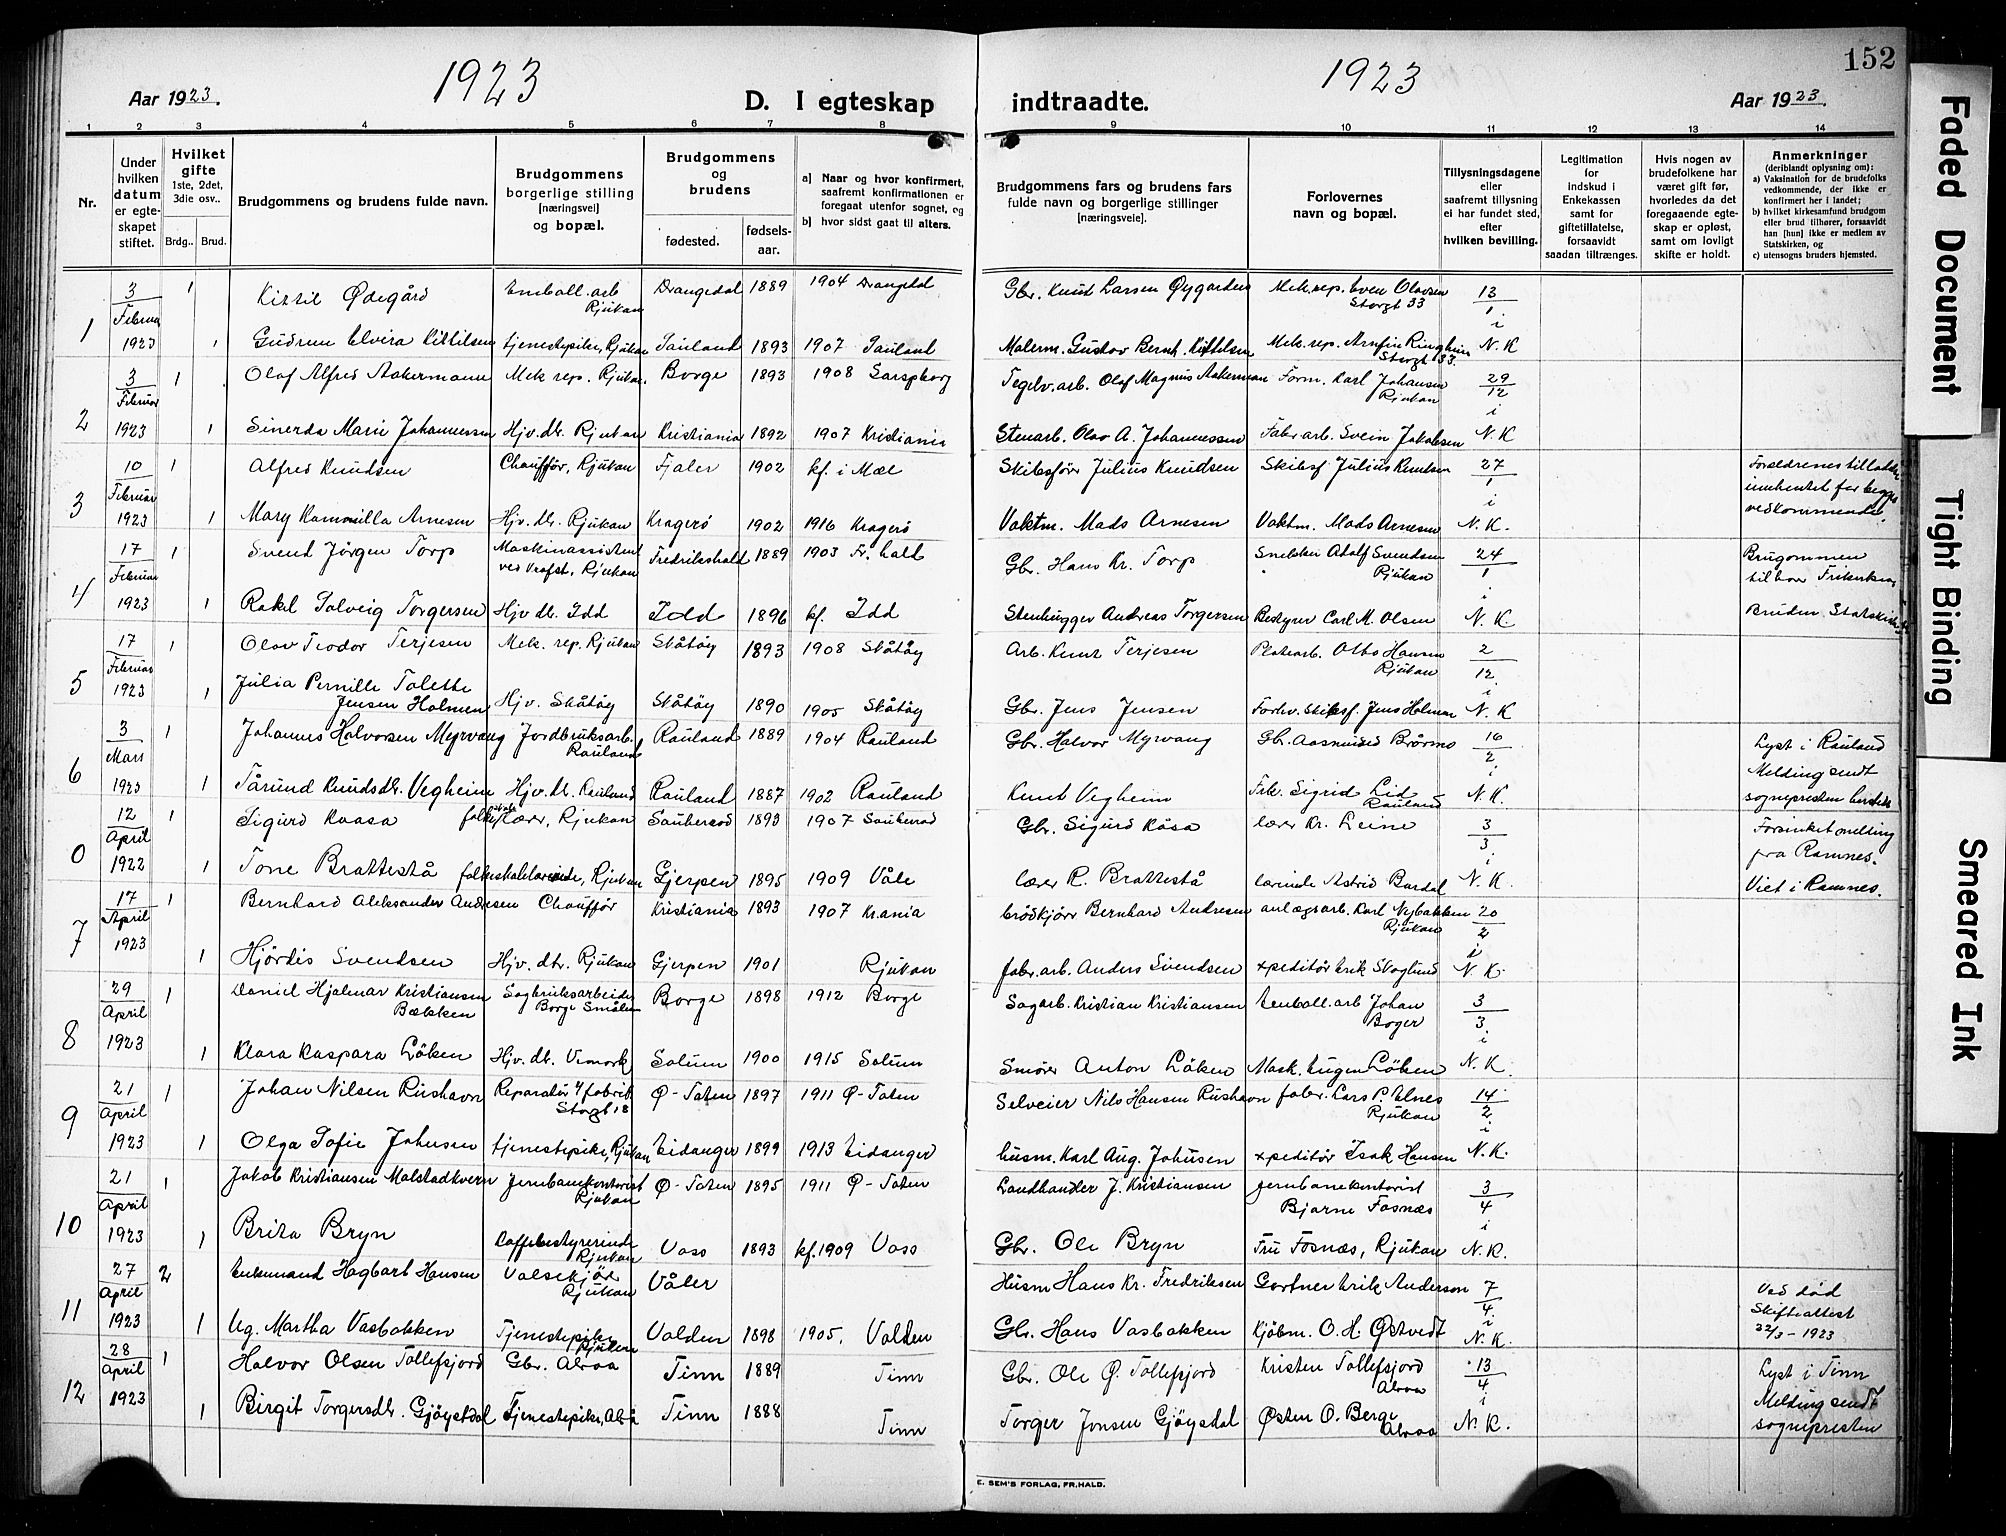 152
1923
1923
Aar 1923.
D. I egteskap
indtraadte.
Aar 1923.
1 2 3 4 5 6 7 8 9 10 11 12 13 14
Nr.
Under hvilken datum er egteskapet stiftet.
Hvilket gifte 1ste, 2det, 3die osv..
Brdg.. Brud.
Brudgommens og brudens fulde navn.
Brudgommens borgerlige stilling [næringsvei] og bopæl.
Brudgommens og brudens
fødested. fødselsaar.
a) Naar og hvor konfirmert, saafremt konfirmationen er foregaat utenfor sognet, og
b) hvor sidst gaat til alters.
Brudgommens fars og brudens fars fulde navn og borgerlige stillinger [næringsveie].
Forlovernes navn og bopæl.
Tillysningsdagene eller saafremt tillysning ei har fundet sted, efter hvilken bevilling.
Legitimation for indskud i Enkekassen samt for giftetillatelse, forsaavidt saadan tiltrænges.
Hvis nogen av brudefolkene har været gift før, hvorledes da det foregaaende egteskap er opløst, samt om lovligt skifte er holdt.
Anmerkninger (deriblandt oplysning om):
a) Vaksination for de brudefolks vedkommende, der ikke er konfirmert her i landet;
b) hvilket kirkesamfund brudgom eller brud tilhører, forsaavidt han [hun] ikke er medlem av Statskirken, og
c) utensogns bruders hjemsted.
1 3 Februar 1923 1 Kittil Ødegård Emball. arb Rjukan Drangedal 1889 1904 Drangedal Gbr. Knud Larsen Øygarden Mek. rep. Even Olavsen Storgt 33 13/1
1 Gudrun Elvira Kittilsen tjenestepike, Rjukan Sauland 1893 1907 Sauland Malerm. Gustav Bernh. Kittilsen Mek. rep. Arnfin Ringheim Storgt 33. i N. K
2 3 Februar 1923 1 Olaf Alfred Aakermann Mek rep. Rjukan. Borge 1893 1908 Sarpsborg Teglv. arb. Olaf Magnus Aakerman Form. Karl Johansen Rjukan 29/12
1 Sinerda Marie Johannessen Hjv. dtr. Rjukan Kristiania 1892 1907 Kristiania Stenarb. Olav A. Johannessen Fabr arb. Svein Jakobsen i N. K
3 10 Februar 1923 1 Alfred Knudsen Chauffør, Rjukan Fjaler 1902 kf. i Mæl Skibsfører Julius Knudsen Skibsf. Julius Knudsen 27/1 Foreldrenes tilladelse innhentet for begges vedkommende.
1 Mary Kammilla Arnesen Hjv. dtr. Rjukan Kragerö 1902 1916 Kragerö Vaktm. Mads Arnesen Vaktm. Mads Arnesen i N. K.
4 17 Februar 1923 1 Svend Jörgen Torp Maskinassistent Rjukan Fredrikshald 1889 1903 Fr. hald Gbr. Hans Kr. Torp Snekker Adolf Svendsen Rjukan 24/1 Brugommen tilhører Frikirken
1 Rakel Solveig Torgersen Hjv. dtr. Idd Idd 1896 kf. Idd Stenhugger Andreas Torgersen Bestyrer Carl M. Olsen i N. K. Bruden Statskirken
5 17 Februar 1923 1 Olav Teodor Terjesen Mek. rep. Rjukan Skåtöy 1893 1908 Skåtöy Arb. Knut Terjesen Platearb. Otto Hansen Rjukan 2/12
1 Julia Pernille Tolette Jensen Holmen Hjv. Skåtöy Skåtöy 1890 1905 Skåtöy Gbr. Jens Jensen Forhv. skibsf. Jens Holmen i N. K
6 3 Mars 1923 1 Johannes Halvorsen Myrvang Jordbruksarb. Rauland Rauland 1889 1904 Rauland Gbr. Halvor Myrvang Gbr. Aasmund Brörmo 16/2 Lyst i Rauland
1 Tårund Knudsdtr. Vegheim Hjv. dtr. Rauland Rauland 1887 1902 Rauland Knut Vegheim Frk. Sigrid Lid Rauland i N. K. Melding sendt sognepresten
0 12 April 1922 1 Sigurd Kaasa folkeskolelærer, Rjukan Sauherad 1893 1907 Sauherad Gbr. Sigurd Kåsa lærer Kr. Leine 3/3 Forsinket melding fra Ramnes.
1 Tone Brattestå folkeskolelærerinde, Rjukan Gjerpen 1895 1909 Våle lærer R. Brattestå lærinde Astrid Bardal i N. K. Viet i Ramnes.
7 17 April 1923 1 Bernhard Aleksander Andresen Chauffør Kristiania 1893 1907 Kr.ania brödkjörer Bernhard Andresen anlægsarb. Karl Nybakken Rjukan 20/2
1 Hjördis Svendsen Hjv. dtr. Rjukan Gjerpen 1901 Rjukan fabr. arb. Anders Svendsen xpeditör Erik Skoglund i N. K.
8 29 April 1923 1 Daniel Hjalmar Kristiansen Bækken Sagbruksarbeider Borge Smålen Borge 1898 1912 Borge Sagarb. Kristian Kristiansen Emball. arb Johan Boger 3/3
1 Klara Kaspara Löken Hjv. dtr. Vemork Solum 1900 1915 Solum Smører Anton Löken Mask. Eugen Löken i N. K.
9 21 April 1923 1 Johan Nilsen Rushavn Reparatör v/ fabrik Storgt 18 Ø-Toten 1897 1911 Ø-Toten Selveier Nils Hansen Rushavn fabr. Lars P. Elnes Rjukan 14/2
1 Olga Sofie Johnsen tjenestepike, Rjukan Eidanger 1899 1913 Eidanger husm. Karl Aug. Johnsen xpeditör Isak Hansen i N. K.
10 21 April 1923 1 Jakob Kristiansen Malstadkvern Jernbanekontorist Rjukan Ø-Toten 1895 1911 Ø-Toten Landhandler J. Kristiansen jernbanekontorist Bjarne Fosnæs 3/4
1 Brita Bryn Kaffebestyrerinde Rjukan Voss 1893 kf. 1909 Voss Gbr. Ole Bryn Fru Fosnæs, Rjukan i N. K.
11 27 April 1923 2 Enkemand Hagbart Hansen Valsekjör Rjukan Våler Husm Hans Kr. Fredriksen Gartner Erik Anderson 7/4 Ved död Skifteattest 22/3 - 1923
1 Ug. Martha Vasbakken Tjenestepike Rjukan Valden 1898 1905. Valden Gbr. Hans Vasbakken Kjöbm. O. H. Østvedt i N. K.
12 28 April 1923 1 Halvor Olsen Tollefsjord Gbr. Atraa Tinn 1889 Tinn Gbr. Ole Ø. Tollefsjord Kristen Tollefsjord Atraa 13/4 Lyst i Tinn
1 Birgit Torgersdtr. Gjöystdal Tjenestepike, Atrå Tinn 1888 Tinn Torger Jonsen Gjöysdal Østen O. Berge Atraa i N. K. Melding sendt sognepresten
E. SEM'S FORLAG, FR.HALD.
Faded Document
Tight Binding
Smeared Ink